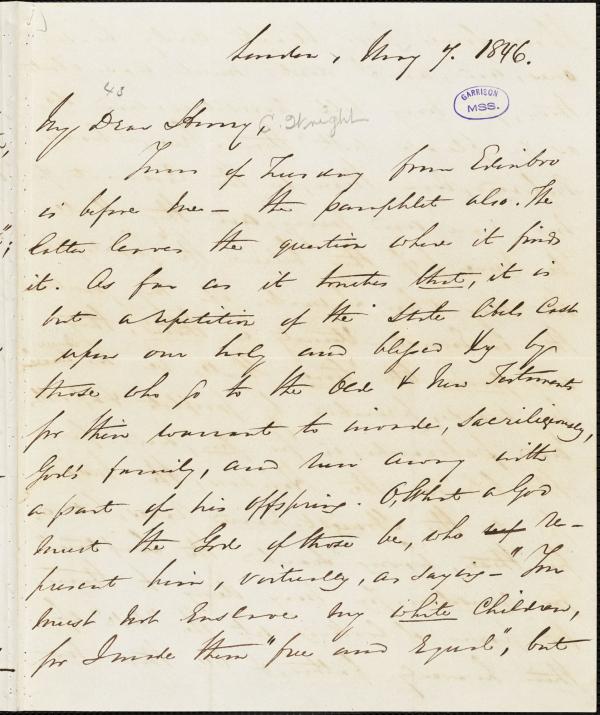 London, May 7. 1846.
48
GARRISON
MSS.
My Dear Henry, C. Wright
Yours of Tuesday from Edinbro
is before me — the pamphlet also. The
latter leaves the question where it finds
it. As far as it touches that, it is
but a repetition of the stale libels cast
upon our holy and blessed by
those who go to the Old & New Testaments
for their warrant to invade, sacriligiously,
God's family, and run away with
a part of his offspring. O, What a God
must the God of those be, who re-
present him, virtually, as saying — "You
must not enslave my white children,
for I made them "free and equal", but